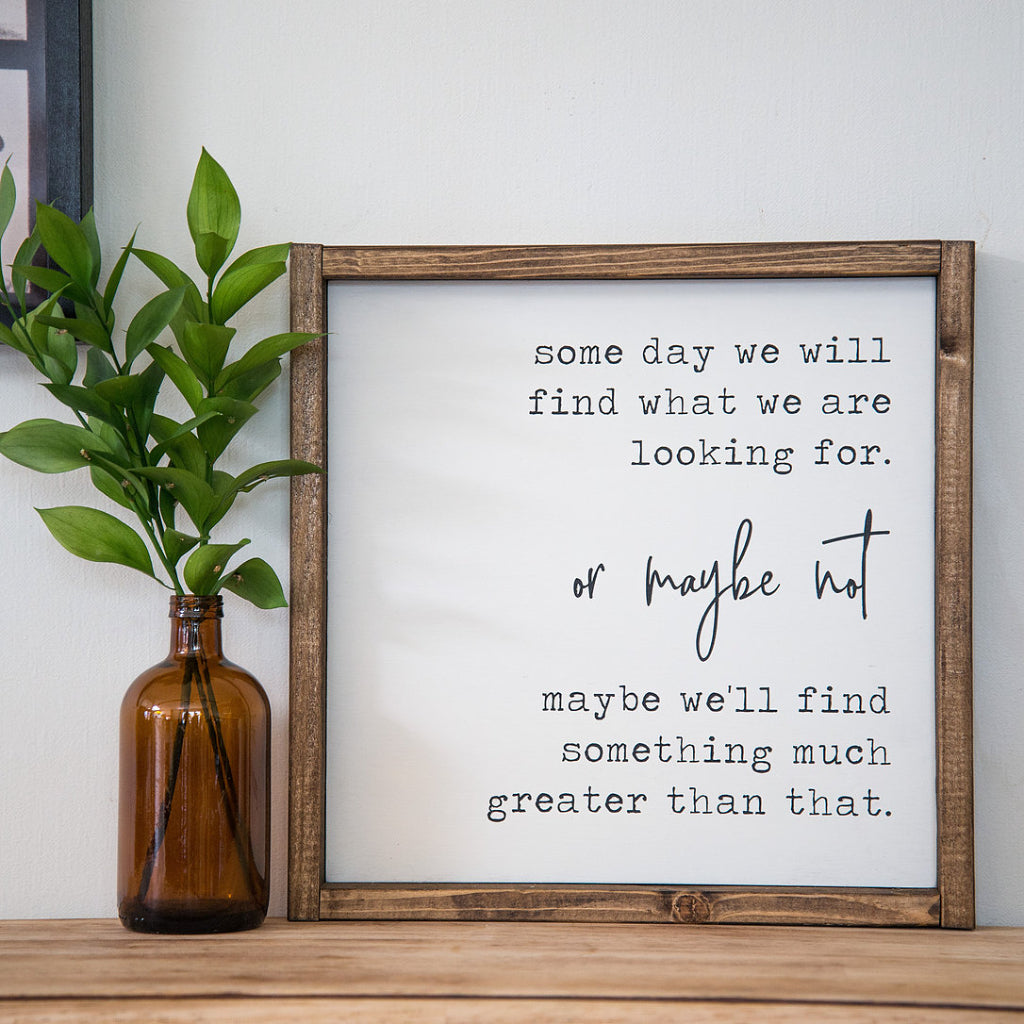 some day we will
find what we are
looking for.
or maybe not
maybe we'll find
something much
greater than that.